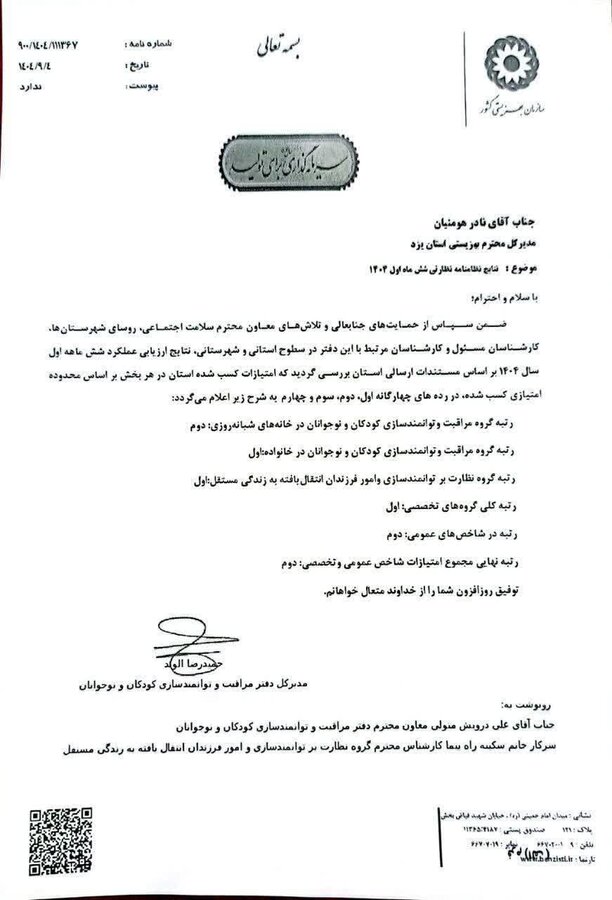 بسمه تعالی
شماره نامه : ۹۰۰/۱٤۰٤/۱۱۱۳۶۷
تاریخ : ۱٤۰٤/۹/٤
پیوست : ندارد
سازمان بهزیستی کشور
سرمایه گذاری برای تولید
جناب آقای نادر هومنیان
مدیرکل محترم بهزیستی استان یزد
موضوع : نتایج نظامنامه نظارتی شش ماه اول ۱۴۰۴
با سلام و احترام؛
ضمن سپاس از حمایت‌های جنابعالی و تلاش‌های معاون محترم سلامت اجتماعی، روسای شهرستان‌ها،
کارشناسان مسئول و کارشناسان مرتبط با این دفتر در سطوح استانی و شهرستانی، نتایج ارزیابی عملکرد شش ماهه اول
سال ۱۴۰۴ بر اساس مستندات ارسالی استان بررسی گردید که امتیازات کسب شده استان در هر بخش بر اساس محدوده
امتیازی کسب شده، در رده های چهارگانه اول، دوم، سوم و چهارم به شرح زیر اعلام می‌گردد:
رتبه گروه مراقبت وتوانمندسازی کودکان و نوجوانان در خانه‌های شبانه‌روزی: دوم
رتبه گروه مراقبت وتوانمندسازی کودکان و نوجوانان در خانواده:اول
رتبه گروه نظارت بر توانمندسازی وامور فرزندان انتقال‌یافته به زندگی مستقل:اول
رتبه کلی گروه‌های تخصصی: اول
رتبه در شاخص‌های عمومی: دوم
رتبه نهایی مجموع امتیازات شاخص عمومی وتخصصی: دوم
توفیق روزافزون شما را از خداوند متعال خواهانم.
حمیدرضا الوند
مدیرکل دفتر مراقبت و توانمندسازی کودکان و نوجوانان
رونوشت به:
جناب آقای علی درویش متولی معاون محترم دفتر مراقبت و توانمندسازی کودکان و نوجوانان
سرکار خانم سکینه راه پیما کارشناس محترم گروه نظارت بر توانمندسازی و امور فرزندان انتقال یافته به زندگی مستقل
نشانی : میدان امام خمینی (ره) ، خیابان شهید فیاض بخش
پلاک : ۱۲۱ صندوق پستی : ۱۱۳۶۵/۴۱۸۷
تلفن : ۹ - ۶۶۷۰۲۰۰۱ نمابر : ۶۶۷۰۷۰۱۹
تارنما : www.behzisti.ir